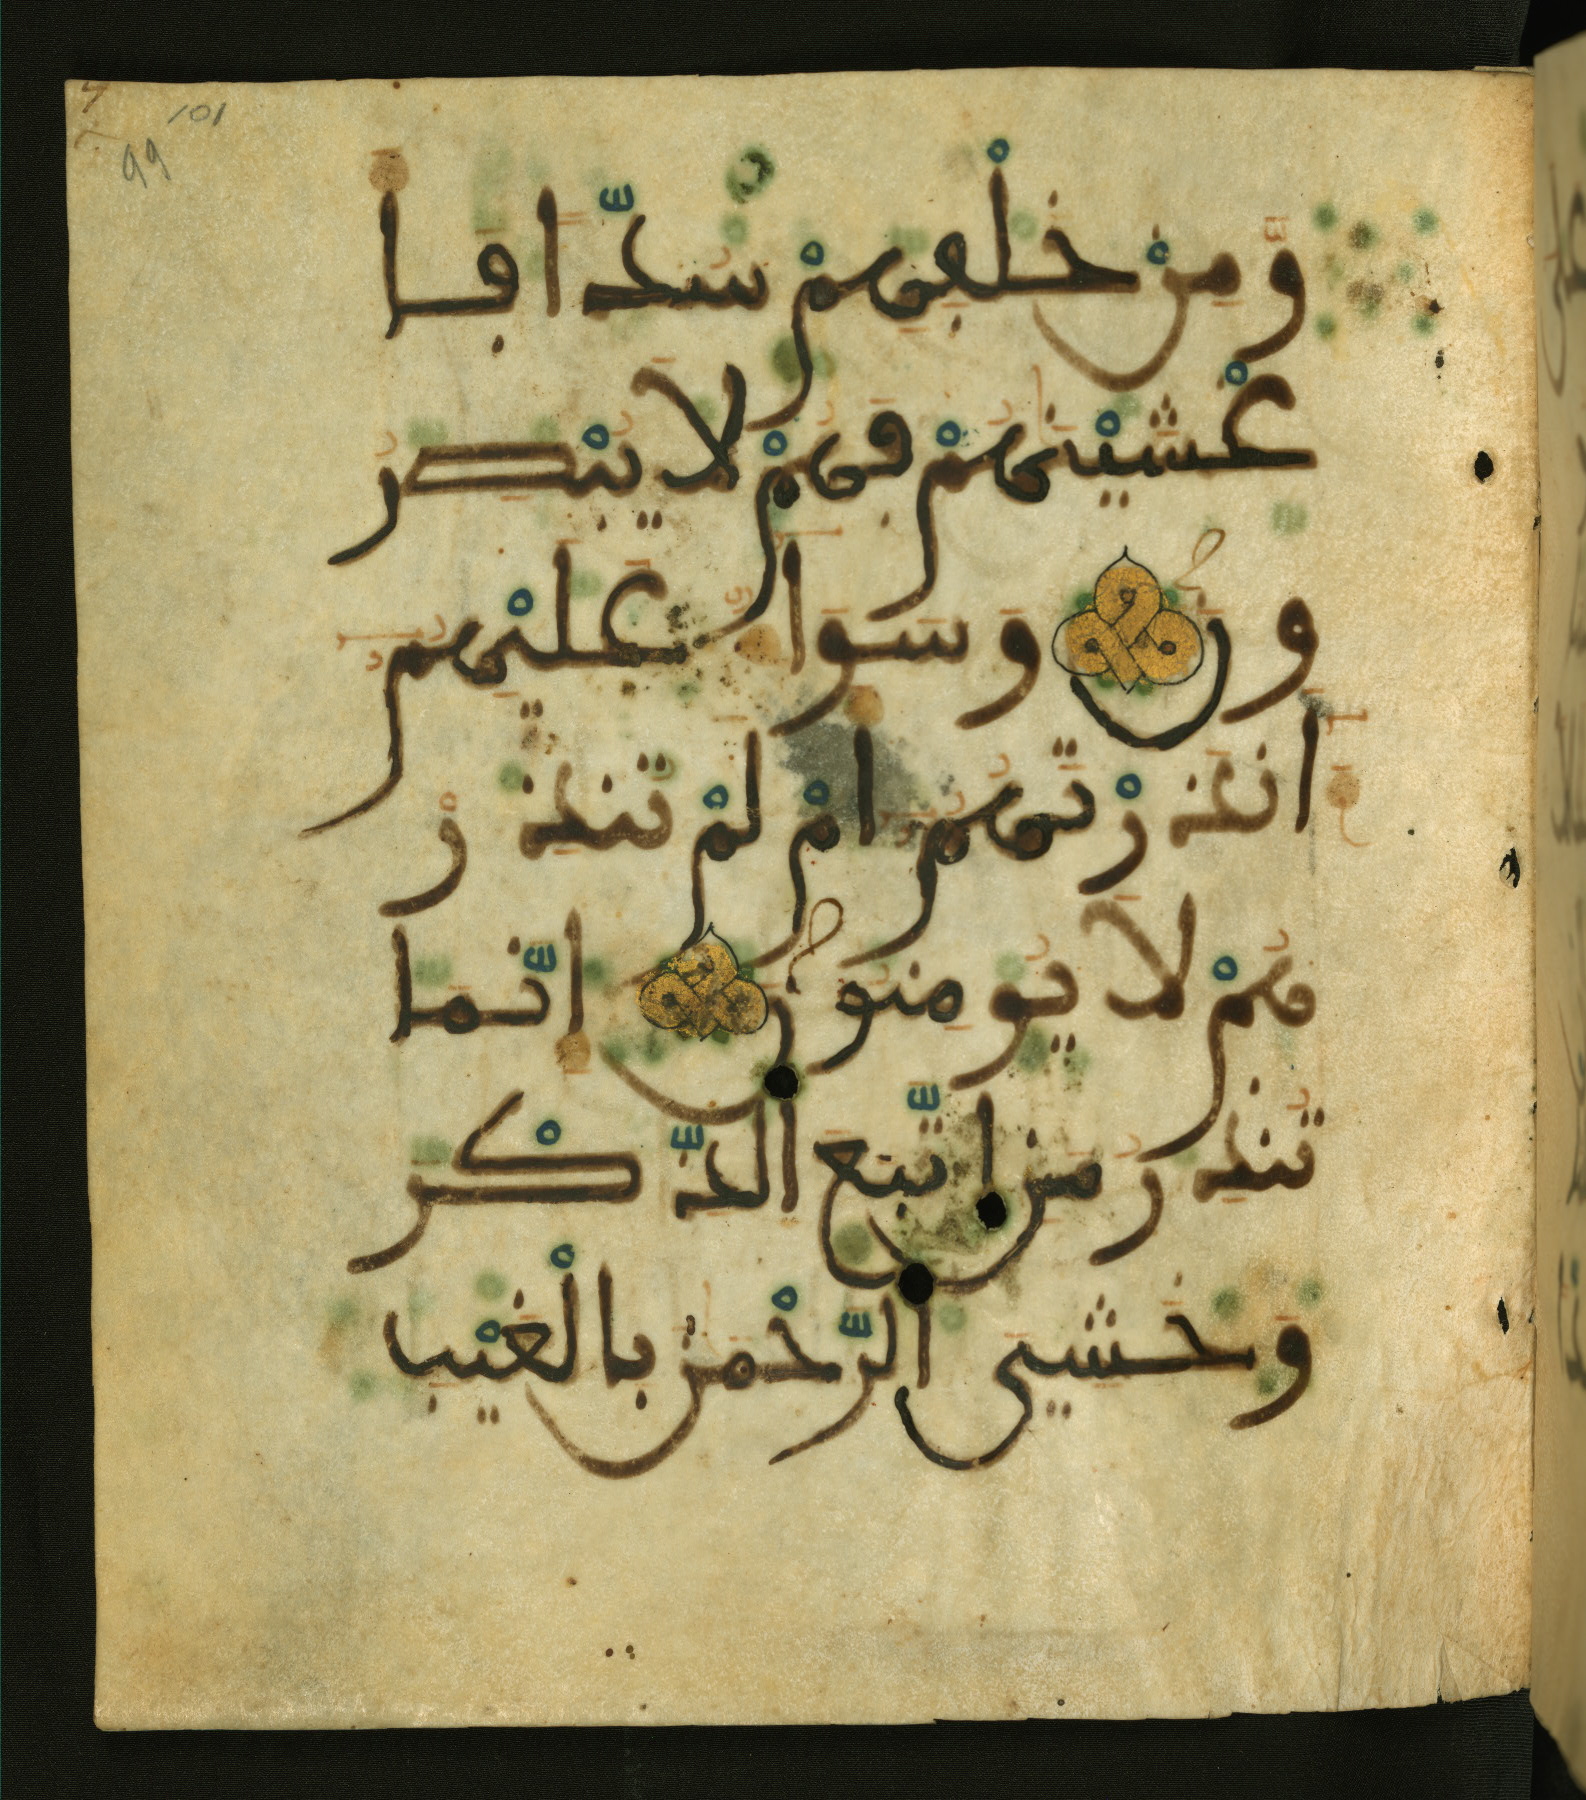 101
99
ومن خلفهم سدا فا
غشينهم فهم لا يبصر
ون وسوا عليهم
انذرتهم ام لم تنذر
هم لا يومنون انما
تنذر من اتبع الذكر
وخشي الرحمن بالغيب